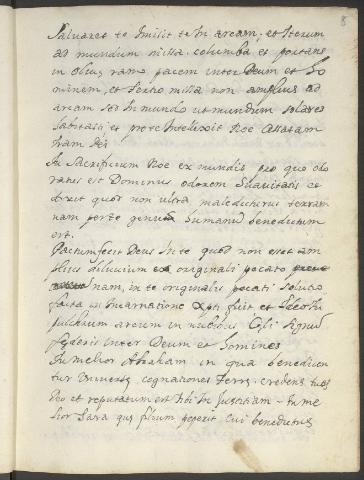 8
Salvaret te Imisit te In arcam, et Iterum
ad mundum missa columba et portans
in oliva ramo pacem inter Deum et ho
minem, et tertio missa non amplius ad
arcam sed In mundo ut mundum
et Noe
In Sacrificium Noe ex mundis pro quo odo
ratus est Dominus odorem Suavitatis ac
dixit quod non ultra malediceturus terram
nam per te genus humanum benedictum
est.
Pactum fecit Deus In te quod non esset am
plius diluvium ex originali pecato
nam, in te originalis pecati soluto
facta in Incarnatione Xpti fuit et Ideo Tu
pulchrum arcum in nubibus Celi Signum
federis Inter Deum et homines
Tu melior Abraham in qua benedicen
tur Universe cognationes Terre. credens
Deo et reputatum est tibi In Justitiam - tu me
lior Sara que filium peperit cui benedictus